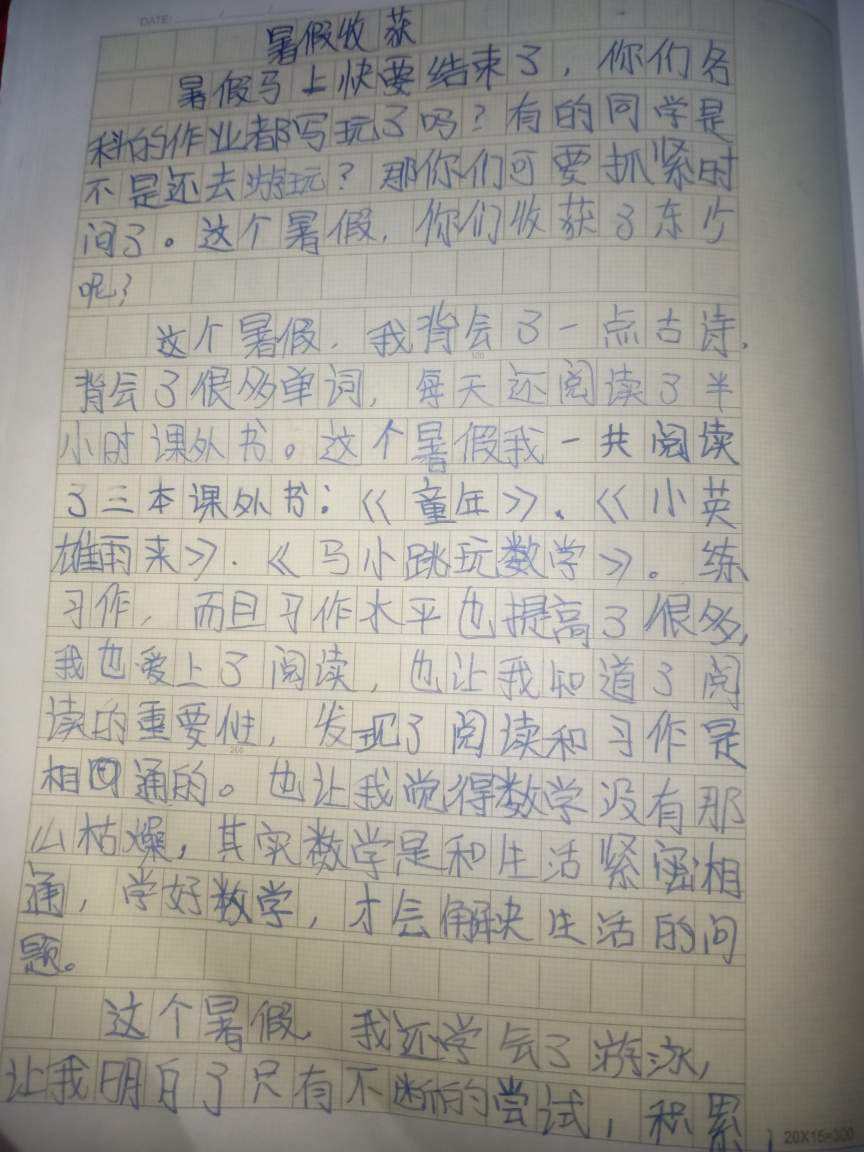 DATE:
暑假收获
暑假马上快要结束了，你们各
科的作业都写玩了吗？有的同学是
不是还去游玩？那你们可要抓紧时
间了。这个暑假，你们收获了东少
呢？
这个暑假，我背会了一点古诗，
背会了很多单词，每天还阅读了半
小时课外书。这个暑假我一共阅读
了三本课外书：《童年》、《小英
雄雨来》、《马小跳玩数学》。练
习作，而且习作水平也提高了很多，
我也爱上了阅读，也让我知道了阅
读的重要性，发现了阅读和习作是
相通的。也让我觉得数学没有那
么枯燥，其实数学是和生活紧密相
通，学好数学，才会解决生活的问
题。
这个暑假，我还学会了游泳，
让我明白了只有不断的尝试，积累
20X15=300